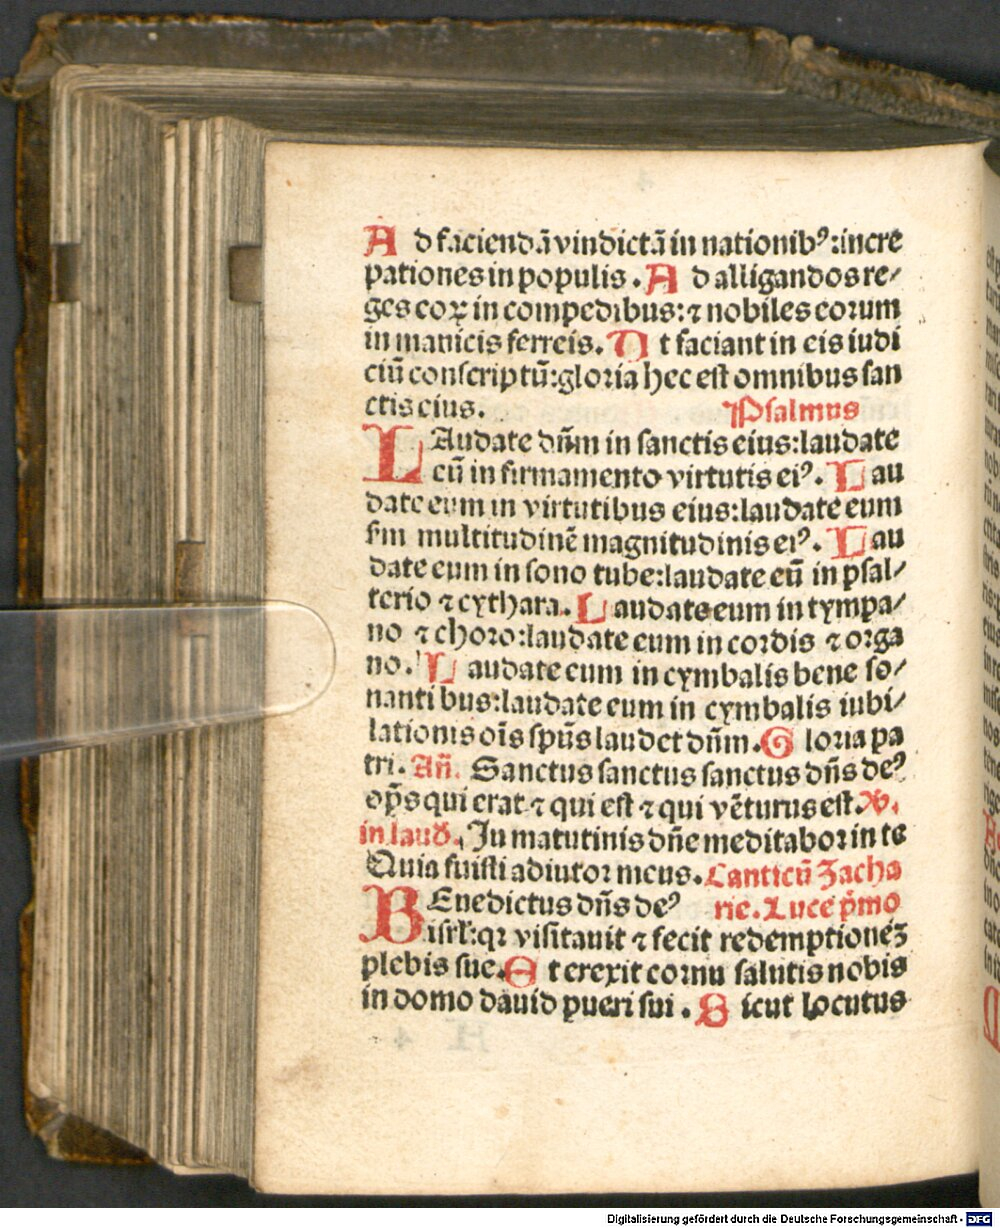 Ad faciendā vindictā in nationibꝰ: incre
pationes in populis. Ad alligandos re/
ges eoꝝ in compedibus: ⁊ nobiles eorum
in manicis ferreis. Ut faciant in eis iudi
ciū conscriptū: gloria hec est omnibus san
ctis eius. Psalmus
LAudate dn̄m in sanctis eius: laudate
eū in firmamento virtutis eiꝰ. Lau
date eum in virtutibus eius: laudate eum
ſm multitudinē magnitudinis eiꝰ. Lau
date eum in sono tube: laudate eū in psal/
terio ⁊ cythara. Laudate eum in tympa/
no ⁊ choro: laudate eum in cordis ⁊ orga
no. Laudate eum in cymbalis bene so/
nantibus: laudate eum in cymbalis iubi/
lationis oīs spūs laudet dn̄m. Gloria pa
tri. Añ. Sanctus sanctus sanctus dn̄s deꝰ
op̄s qui erat ⁊ qui est ⁊ qui vēturus est. ℣.
in laud. In matutinis dn̄e meditabor in te
Quia fuisti adiutor meus. Canticū Zacha
BEnedictus dn̄s deꝰ rie. Luce pͥmo
isrl̄: qꝛ visitauit ⁊ fecit redemptioneʒ
plebis sue. Et erexit cornu salutis nobis
in domo dauid pueri sui. Sicut locutus
Digitalisierung gefördert durch die Deutsche Forschungsgemeinschaft - DFG